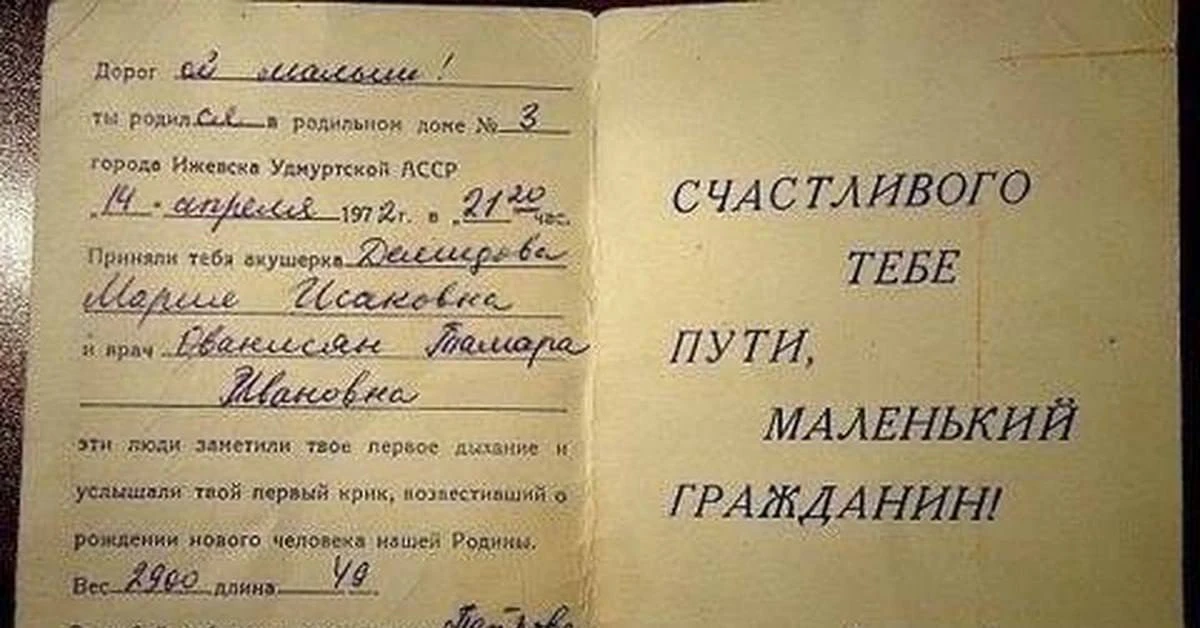 Дорогой малыш!
ты родился в родильном доме № 3
города Ижевска Удмуртской АССР
„14 " апреля 1972г. в „21 20 час.
Приняли тебя акушерка Демидова
Мария Исаковна
и врач Ованисян Тамара
Ивановна
эти люди заметили твое первое дыхание и
услышали твой первый крик, возвестивший о
рождении нового человека нашей Родины.
Вес 2900 длина 49
СЧАСТЛИВОГО
ТЕБЕ
ПУТИ,
МАЛЕНЬКИЙ
ГРАЖДАНИН!